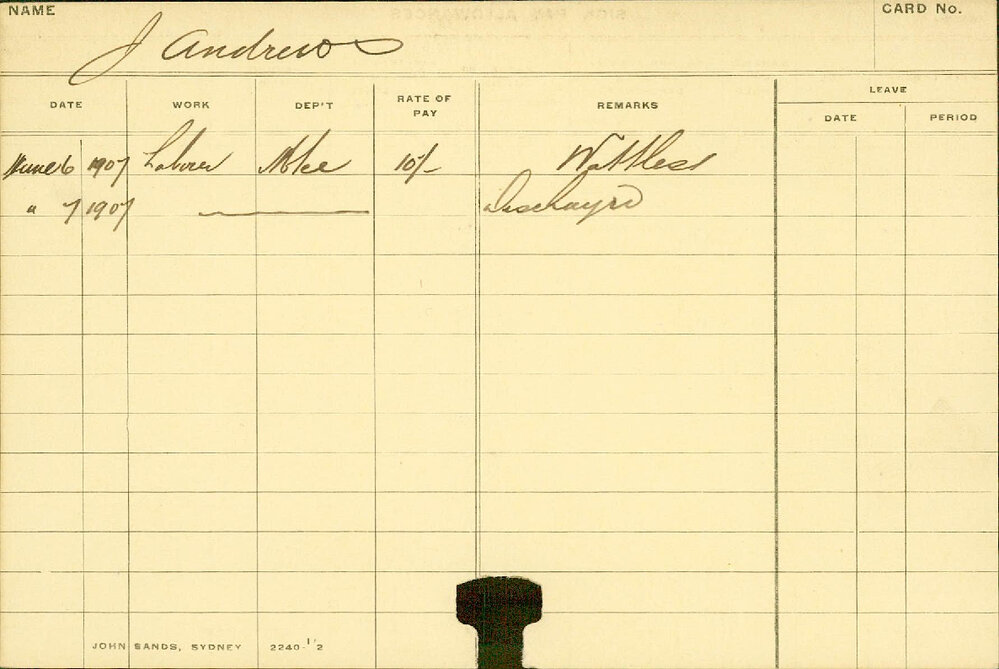 NAME
CARD No.
J Andrews
DATE WORK DEP'T RATE OF PAY REMARKS LEAVE
DATE PERIOD
June 6 1907 Labourer 10/-
" 7 1907 Discharged
JOHN SANDS, SYDNEY 2240-1'2